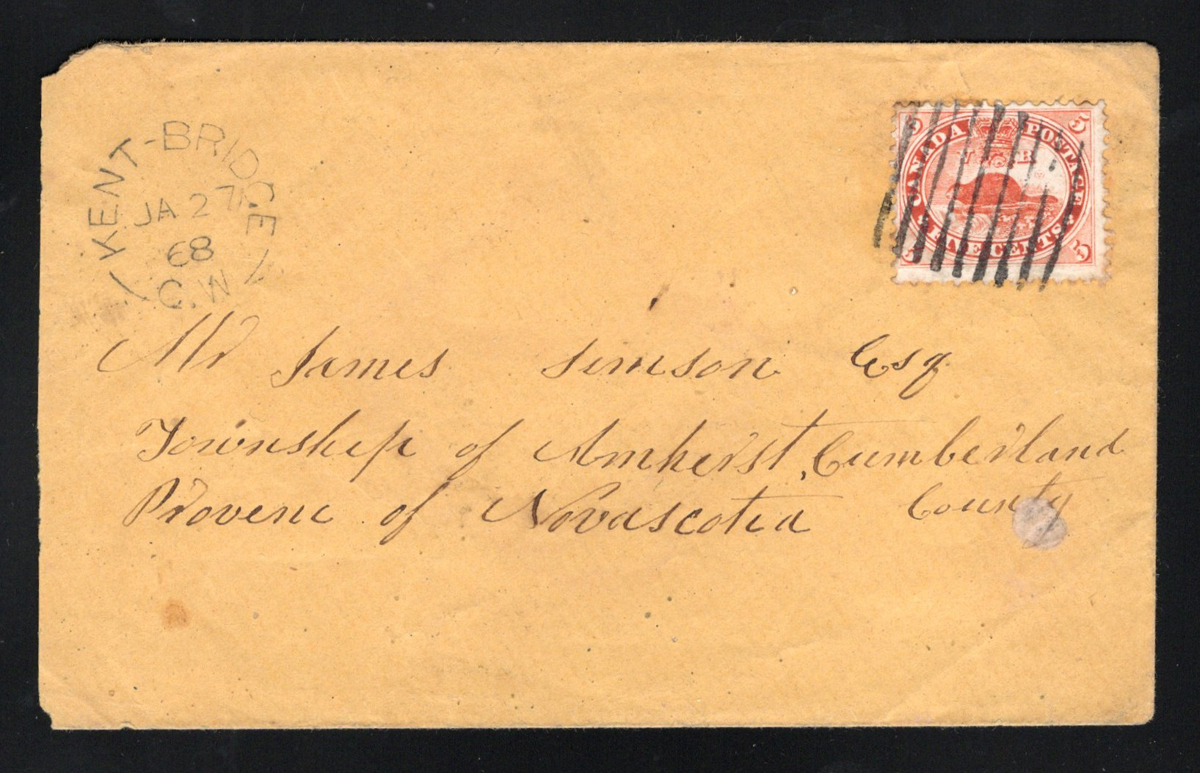 KENT-BRIDGE
JA 27
68
C.W
5 5
CANADA POSTAGE
V R
FIVE CENTS
5 5
Mr James Simson Esq
Township of Amherst, Cumberland
Provenc of Novascotia County